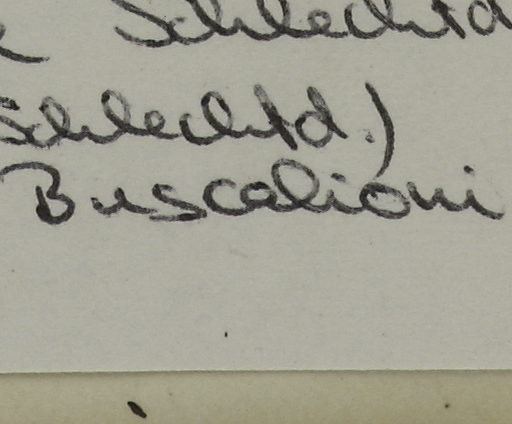 Schlechtd
Schlechtd.)
Buscalioni